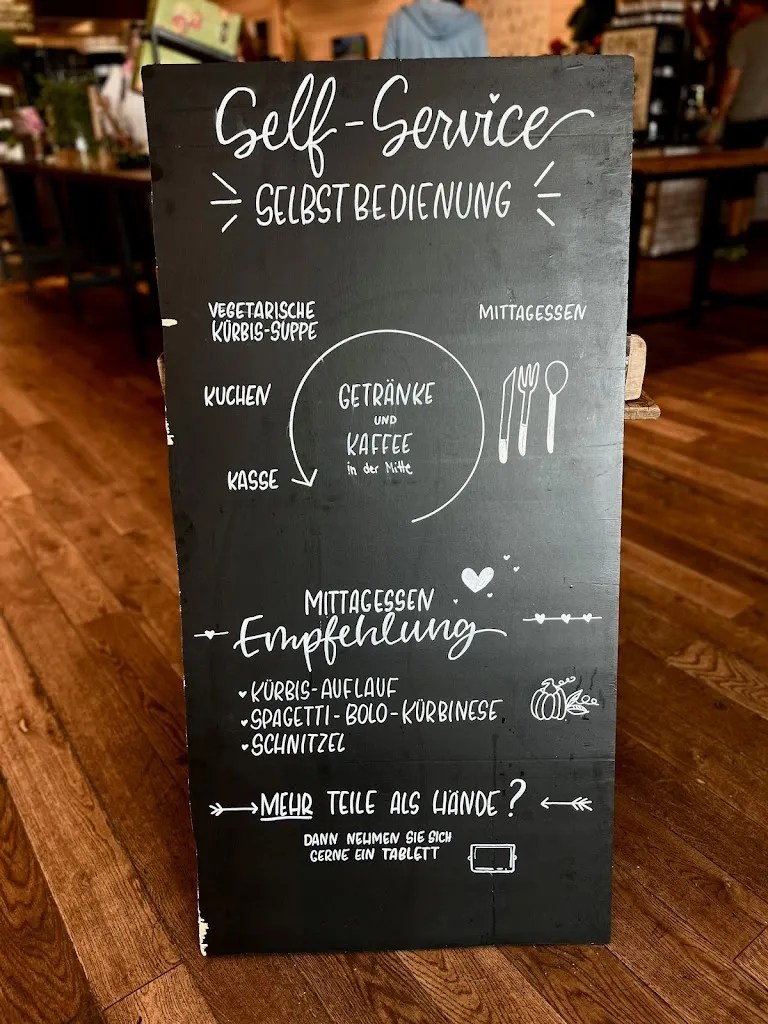 Self-Service
SELBSTBEDIENUNG
VEGETARISCHE
KÜRBIS-SUPPE
MITTAGESSEN
KUCHEN
GETRÄNKE
UND
KAFFEE
in der Mitte
KASSE
MITTAGESSEN
Empfehlung
KÜRBIS-AUFLAUF
SPAGETTI-BOLO-KÜRBINESE
SCHNITZEL
MEHR TEILE ALS HÄNDE?
DANN NEHMEN SIE SICH
GERNE EIN TABLETT